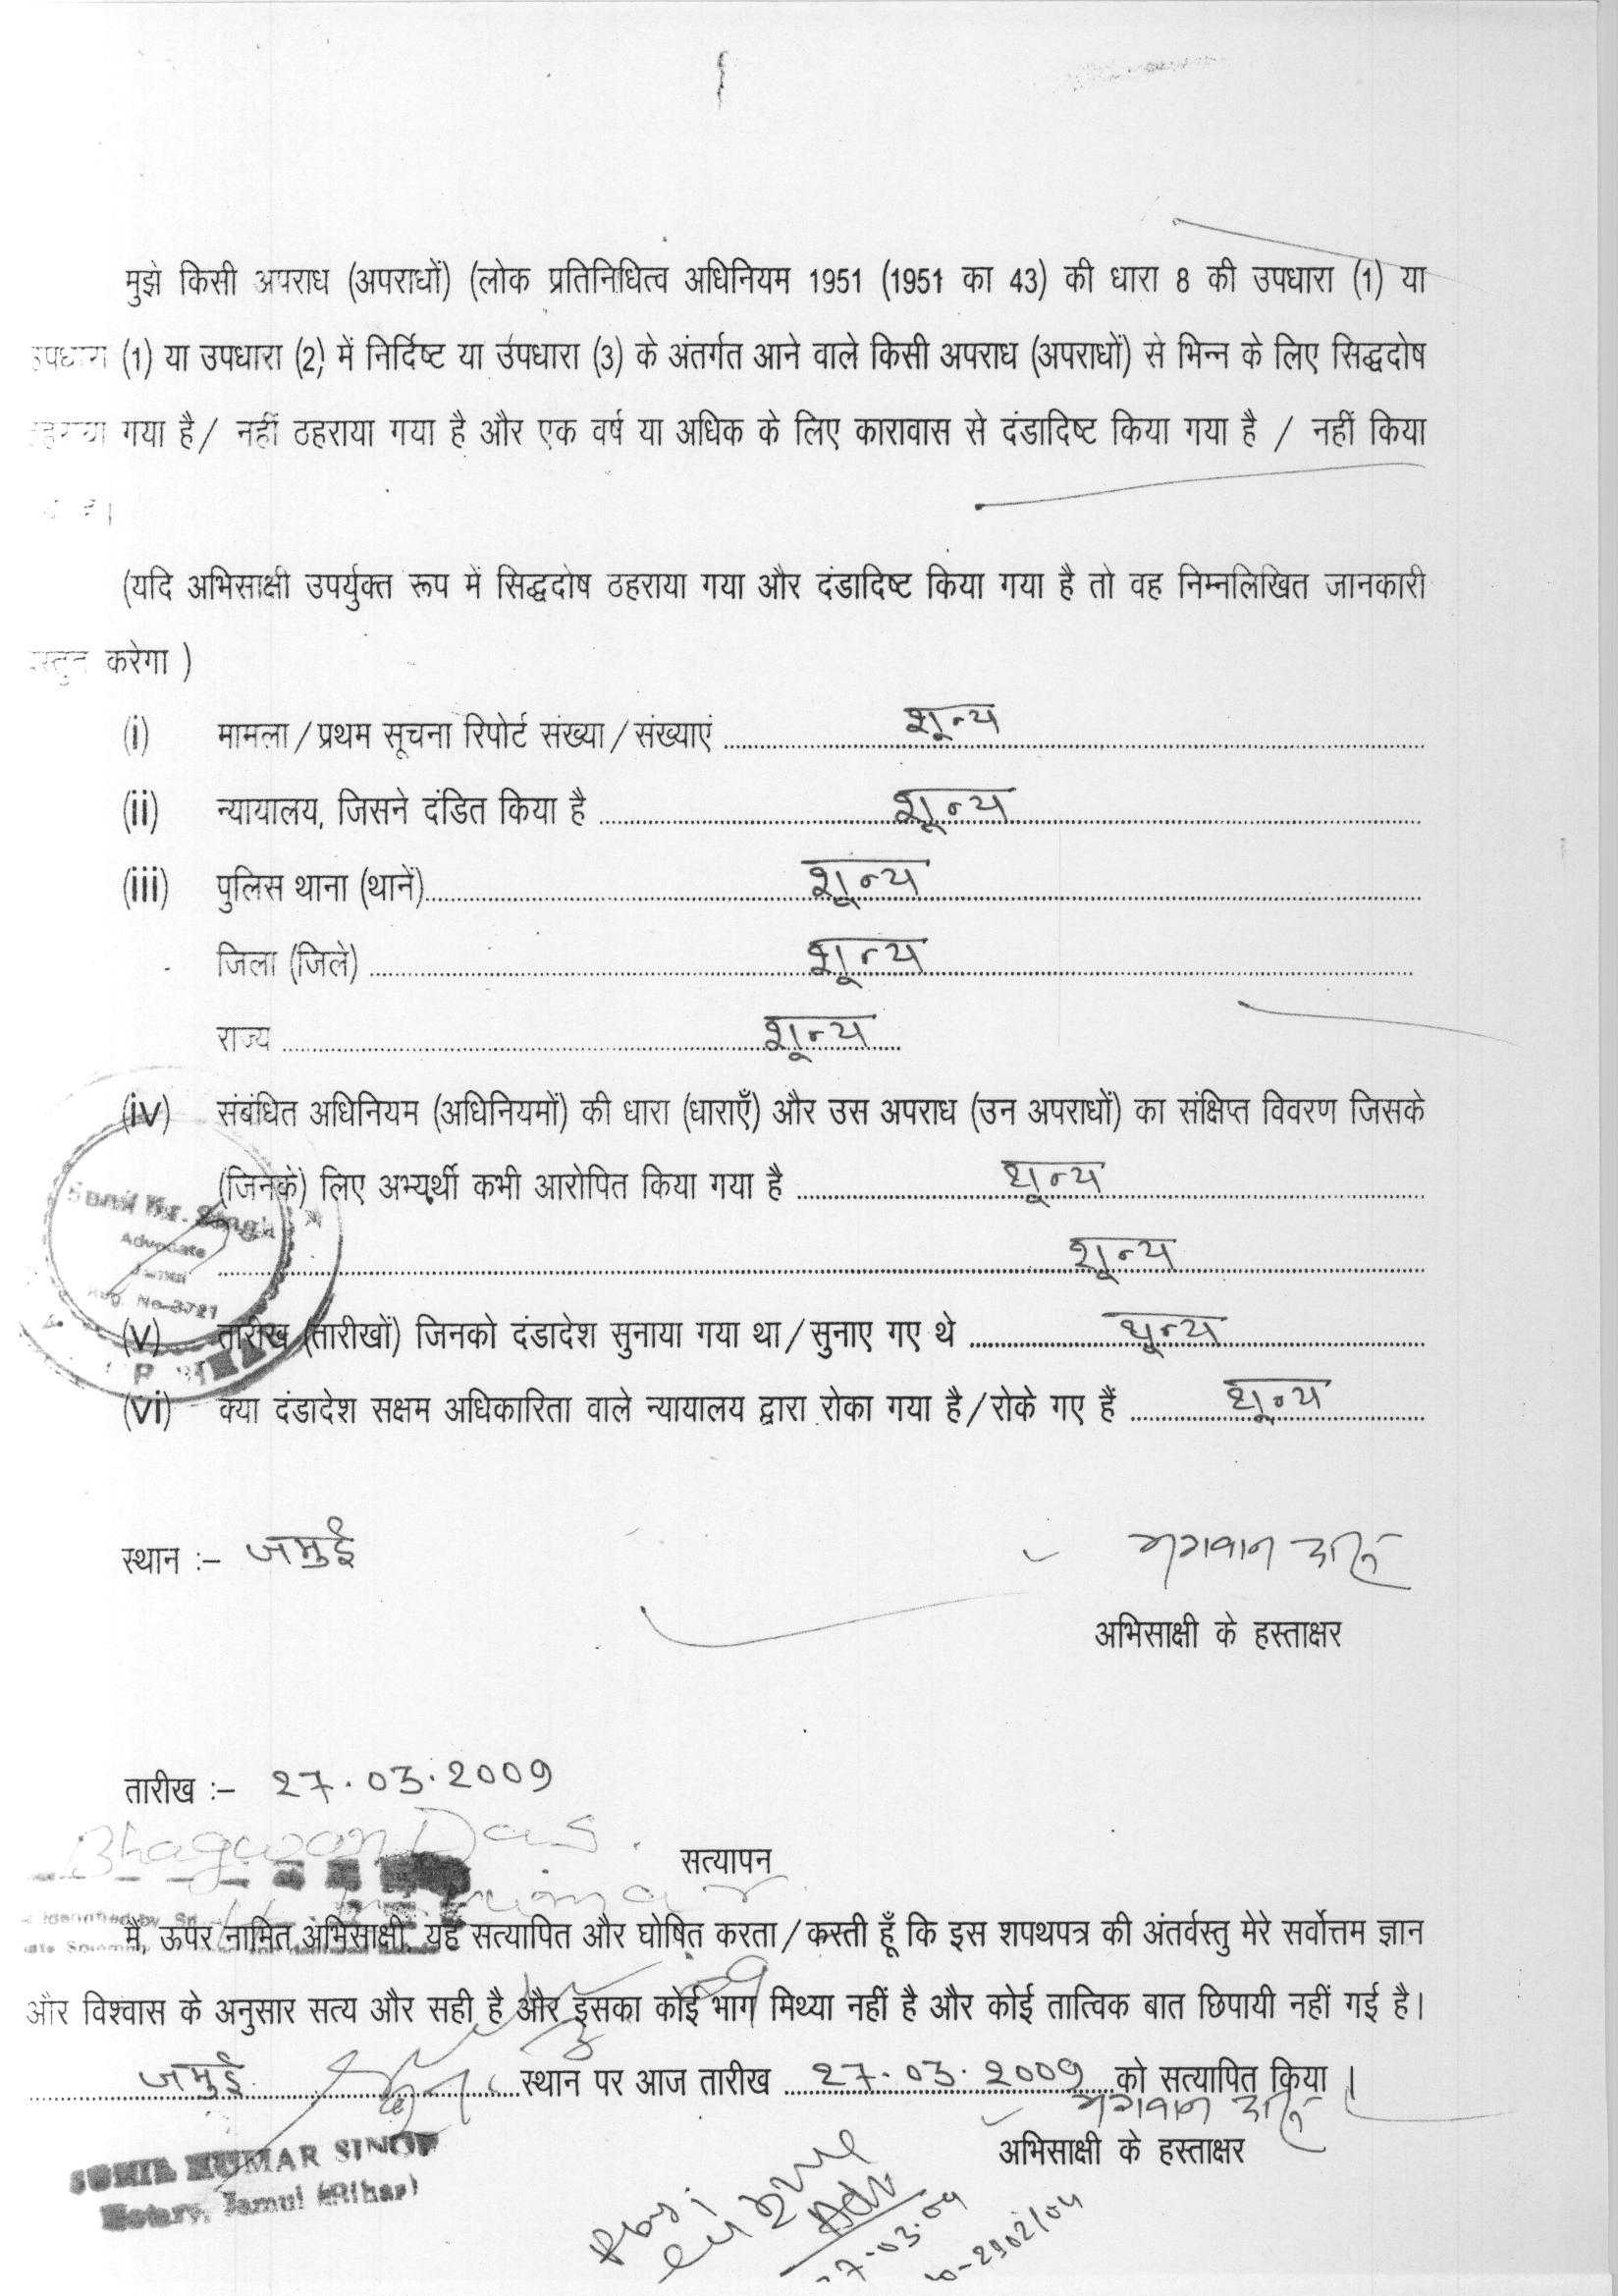 मुझे किसी अपराध (अपराधों) (लोक प्रतिनिधित्व अधिनियम 1951 (1951 का 43) की धारा 8 की उपधारा (1) या
उपधारा (1) या उपधारा (2) में निर्दिष्ट या उपधारा (3) के अंतर्गत आने वाले किसी अपराध (अपराधों) से भिन्न के लिए सिद्धदोष
ठहराया गया है / नहीं ठहराया गया है और एक वर्ष या अधिक के लिए कारावास से दंडादिष्ट किया गया है / नहीं किया
है।
(यदि अभिसाक्षी उपर्युक्त रूप में सिद्धदोष ठहराया गया और दंडादिष्ट किया गया है तो वह निम्नलिखित जानकारी
प्रस्तुत करेगा )
(i) मामला / प्रथम सूचना रिपोर्ट संख्या / संख्याएं शून्य
(ii) न्यायालय, जिसने दंडित किया है शून्य
(iii) पुलिस थाना (थानें) शून्य
जिला (जिले) शून्य
राज्य शून्य
(iv) संबंधित अधिनियम (अधिनियमों) की धारा (धाराएँ) और उस अपराध (उन अपराधों) का संक्षिप्त विवरण जिसके
(जिनके) लिए अभ्यर्थी कभी आरोपित किया गया है शून्य
शून्य
Sunil Kr. Singh
Advocate
Reg. No-3721
(v) तारीख (तारीखों) जिनको दंडादेश सुनाया गया था / सुनाए गए थे शून्य
(vi) क्या दंडादेश सक्षम अधिकारिता वाले न्यायालय द्वारा रोका गया है / रोके गए हैं शून्य
स्थान :– जमुई
भगवान दास
अभिसाक्षी के हस्ताक्षर
तारीख :– 27.03.2009
Bhagwan Das
सत्यापन
Identified by Sri
मैं, ऊपर नामित अभिसाक्षी, यह सत्यापित और घोषित करता / करती हूँ कि इस शपथपत्र की अंतर्वस्तु मेरे सर्वोत्तम ज्ञान
और विश्वास के अनुसार सत्य और सही है और इसका कोई भाग मिथ्या नहीं है और कोई तात्विक बात छिपायी नहीं गई है।
जमुई स्थान पर आज तारीख 27.03.2009 को सत्यापित किया ।
भगवान दास
अभिसाक्षी के हस्ताक्षर
SUNIL KUMAR SINGH
Notary, Jamui (Bihar)